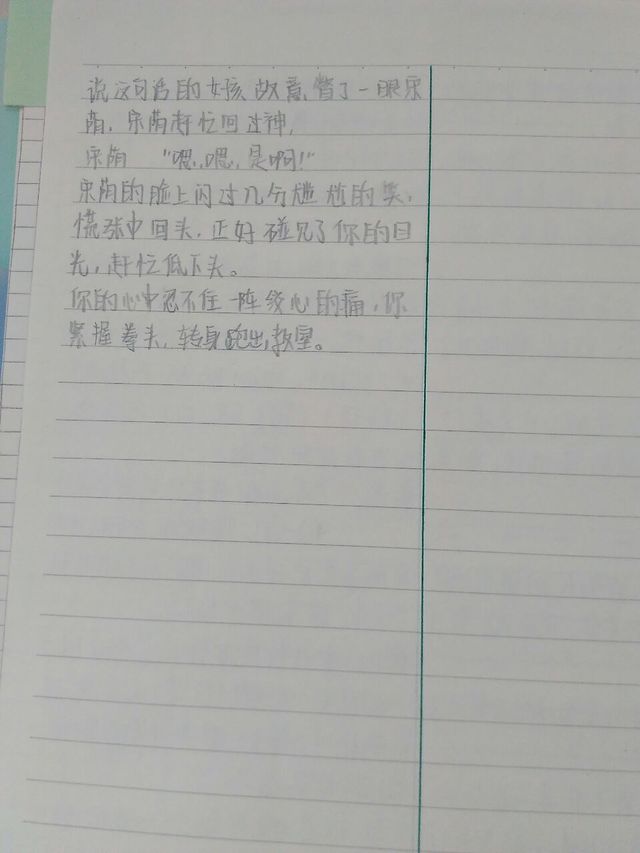 说这句话的女孩故意瞥了一眼宋
荫，宋荫赶忙回过神，
宋荫 “嗯，嗯，是啊！”
宋荫的脸上闪过几分尴尬的笑，
慌张中回头，正好碰见了你的目
光，赶忙低下头。
你的心中忍不住一阵绞心的痛，你
紧握拳头，转身跑出教室。